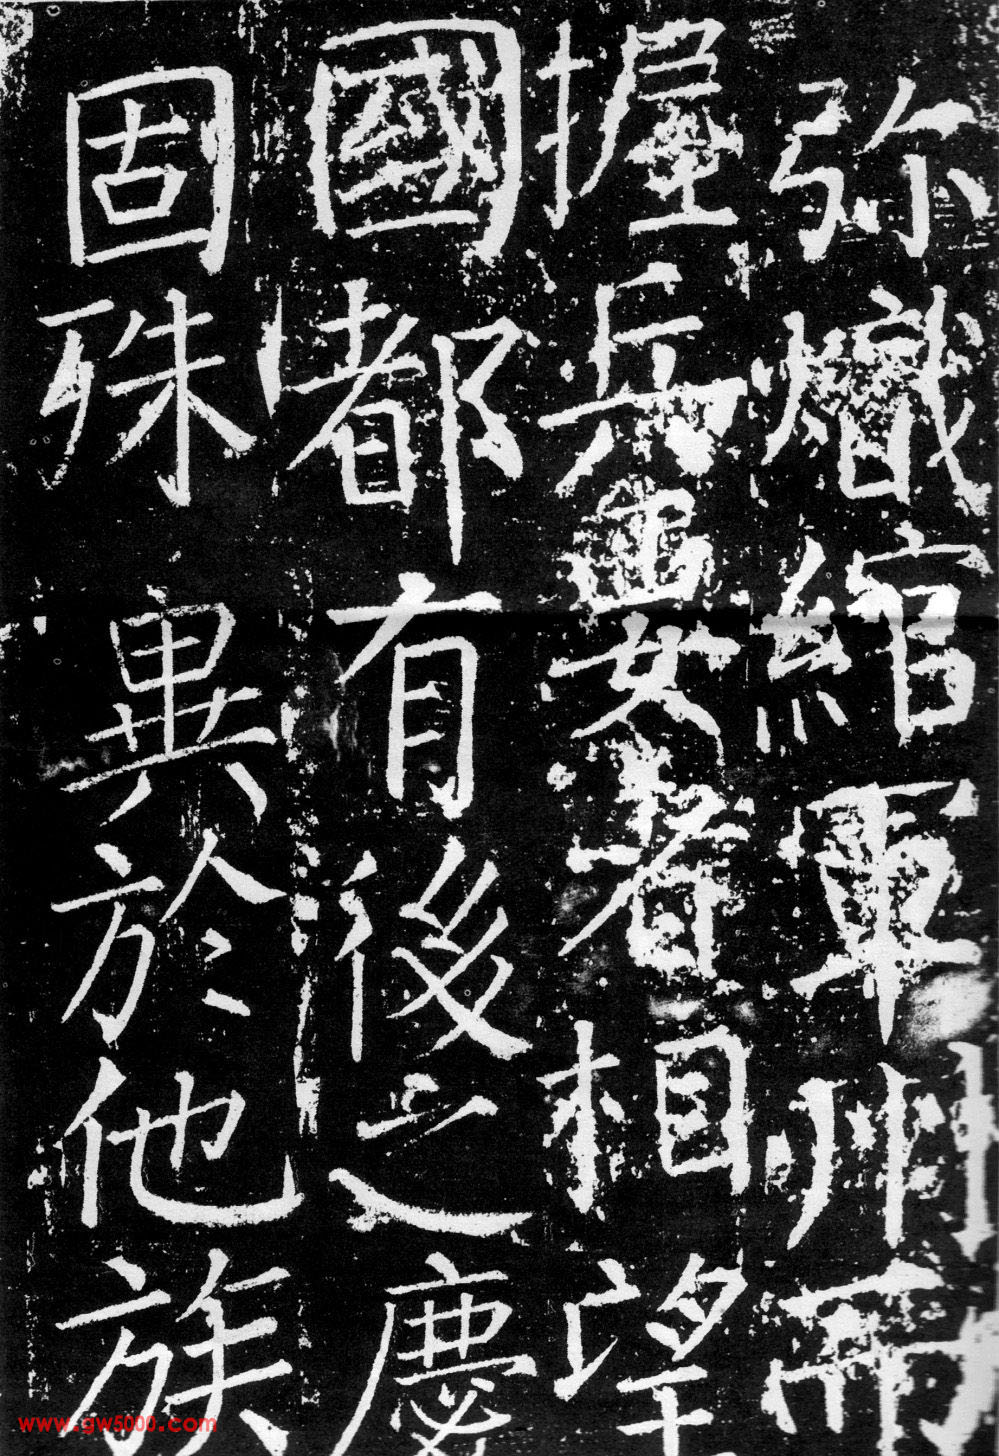 弥熾綰軍州而
握兵要者相望
國都有後之慶
固殊異於他族
www.gw5000.com